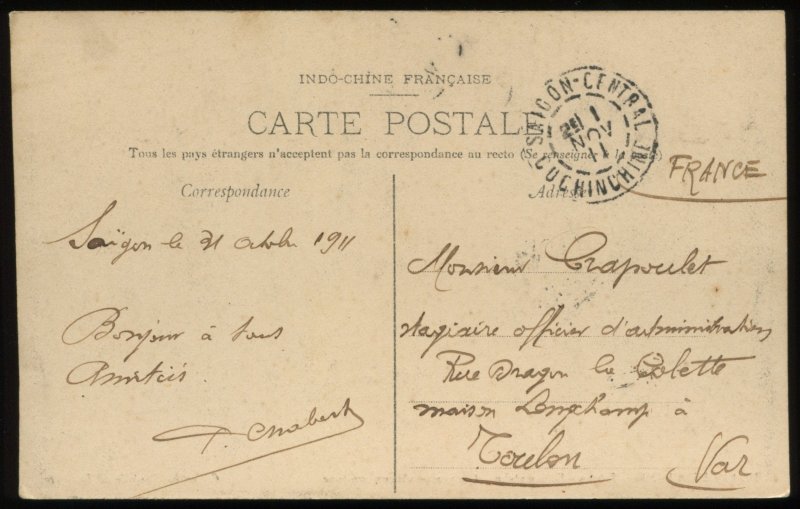 INDO-CHINE FRANÇAISE
CARTE POSTALE
Tous les pays étrangers n'acceptent pas la correspondance au recto (Se renseigner à la
SAIGON-CENTRAL
1
NOV
11
COCHINCHINE
FRANCE
Correspondance
Saïgon le 31 octobre 1911
Bonjour à tous
Amitiés.
Chabert
Adresse
Monsieur Crapoulet
stagiaire officier d'administration
Rue Dragon la Colette
maison Longchamp à
Toulon
Var